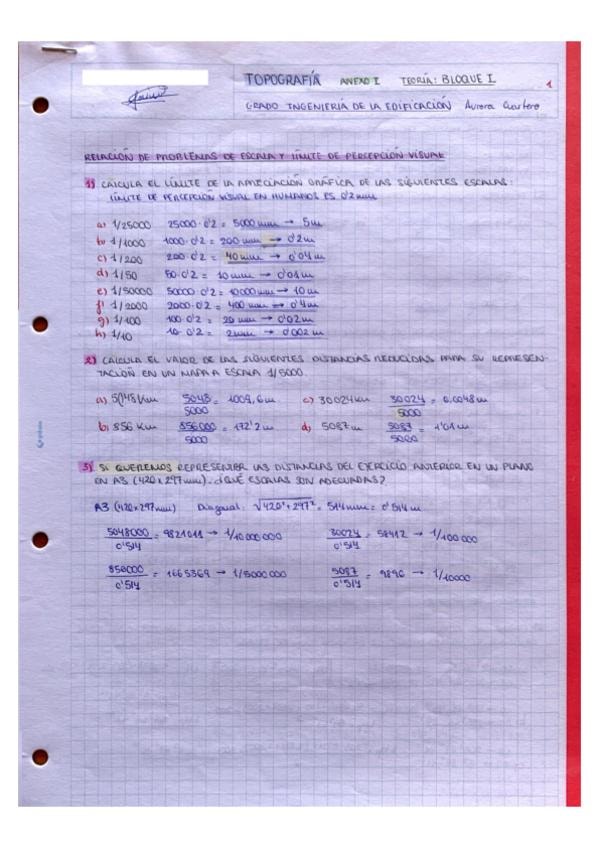 TOPOGRAFÍA ANEXO I TEORÍA: BLOQUE I 1
GRADO INGENIERÍA DE LA EDIFICACIÓN Aurora Cuartero
RELACIÓN DE PROBLEMAS DE ESCALA Y LÍMITE DE PERCEPCIÓN VISUAL
1) CALCULA EL LÍMITE DE LA APRECIACIÓN GRÁFICA DE LAS SIGUIENTES ESCALAS:
LÍMITE DE PERCEPCIÓN VISUAL EN HUMANOS ES 0'2mm
a) 1/25000 25000·0'2 = 5000mm → 5m
b) 1/1000 1000·0'2 = 200 mm → 0'2m
c) 1/200 200·0'2 = 40mm → 0'04m
d) 1/50 50·0'2 = 10mm → 0'01m
e) 1/50000 50000·0'2 = 10000mm → 10m
f) 1/2000 2000·0'2 = 400 mm → 0'4m
g) 1/100 100·0'2 = 20 mm → 0'02m
h) 1/10 10·0'2 = 2mm → 0'002 m
2) CALCULA EL VALOR DE LAS SIGUIENTES DISTANCIAS REDUCIDAS PARA SU REPRESEN-
TACIÓN EN UN MAPA A ESCALA 1/5000.
a) 5048Km 5048/5000 = 1009,6m c) 30024Km 30024/5000 = 6,0048m
b) 856 Km 856000/5000 = 172'2m d) 5087m 5087/5000 = 1'01m
3) SI QUEREMOS REPRESENTAR LAS DISTANCIAS DEL EJERCICIO ANTERIOR EN UN PLANO
EN A3 (420x297mm). ¿QUÉ ESCALAS SON ADECUADAS?
A3 (420x297mm) Diagonal: √420²+297² = 514mm = 0'514m
5048000/0'514 = 9821011 → 1/10000000 30024/0'514 = 58412 → 1/100000
856000/0'514 = 1665369 → 1/5000000 5087/0'514 = 9896 → 1/10000